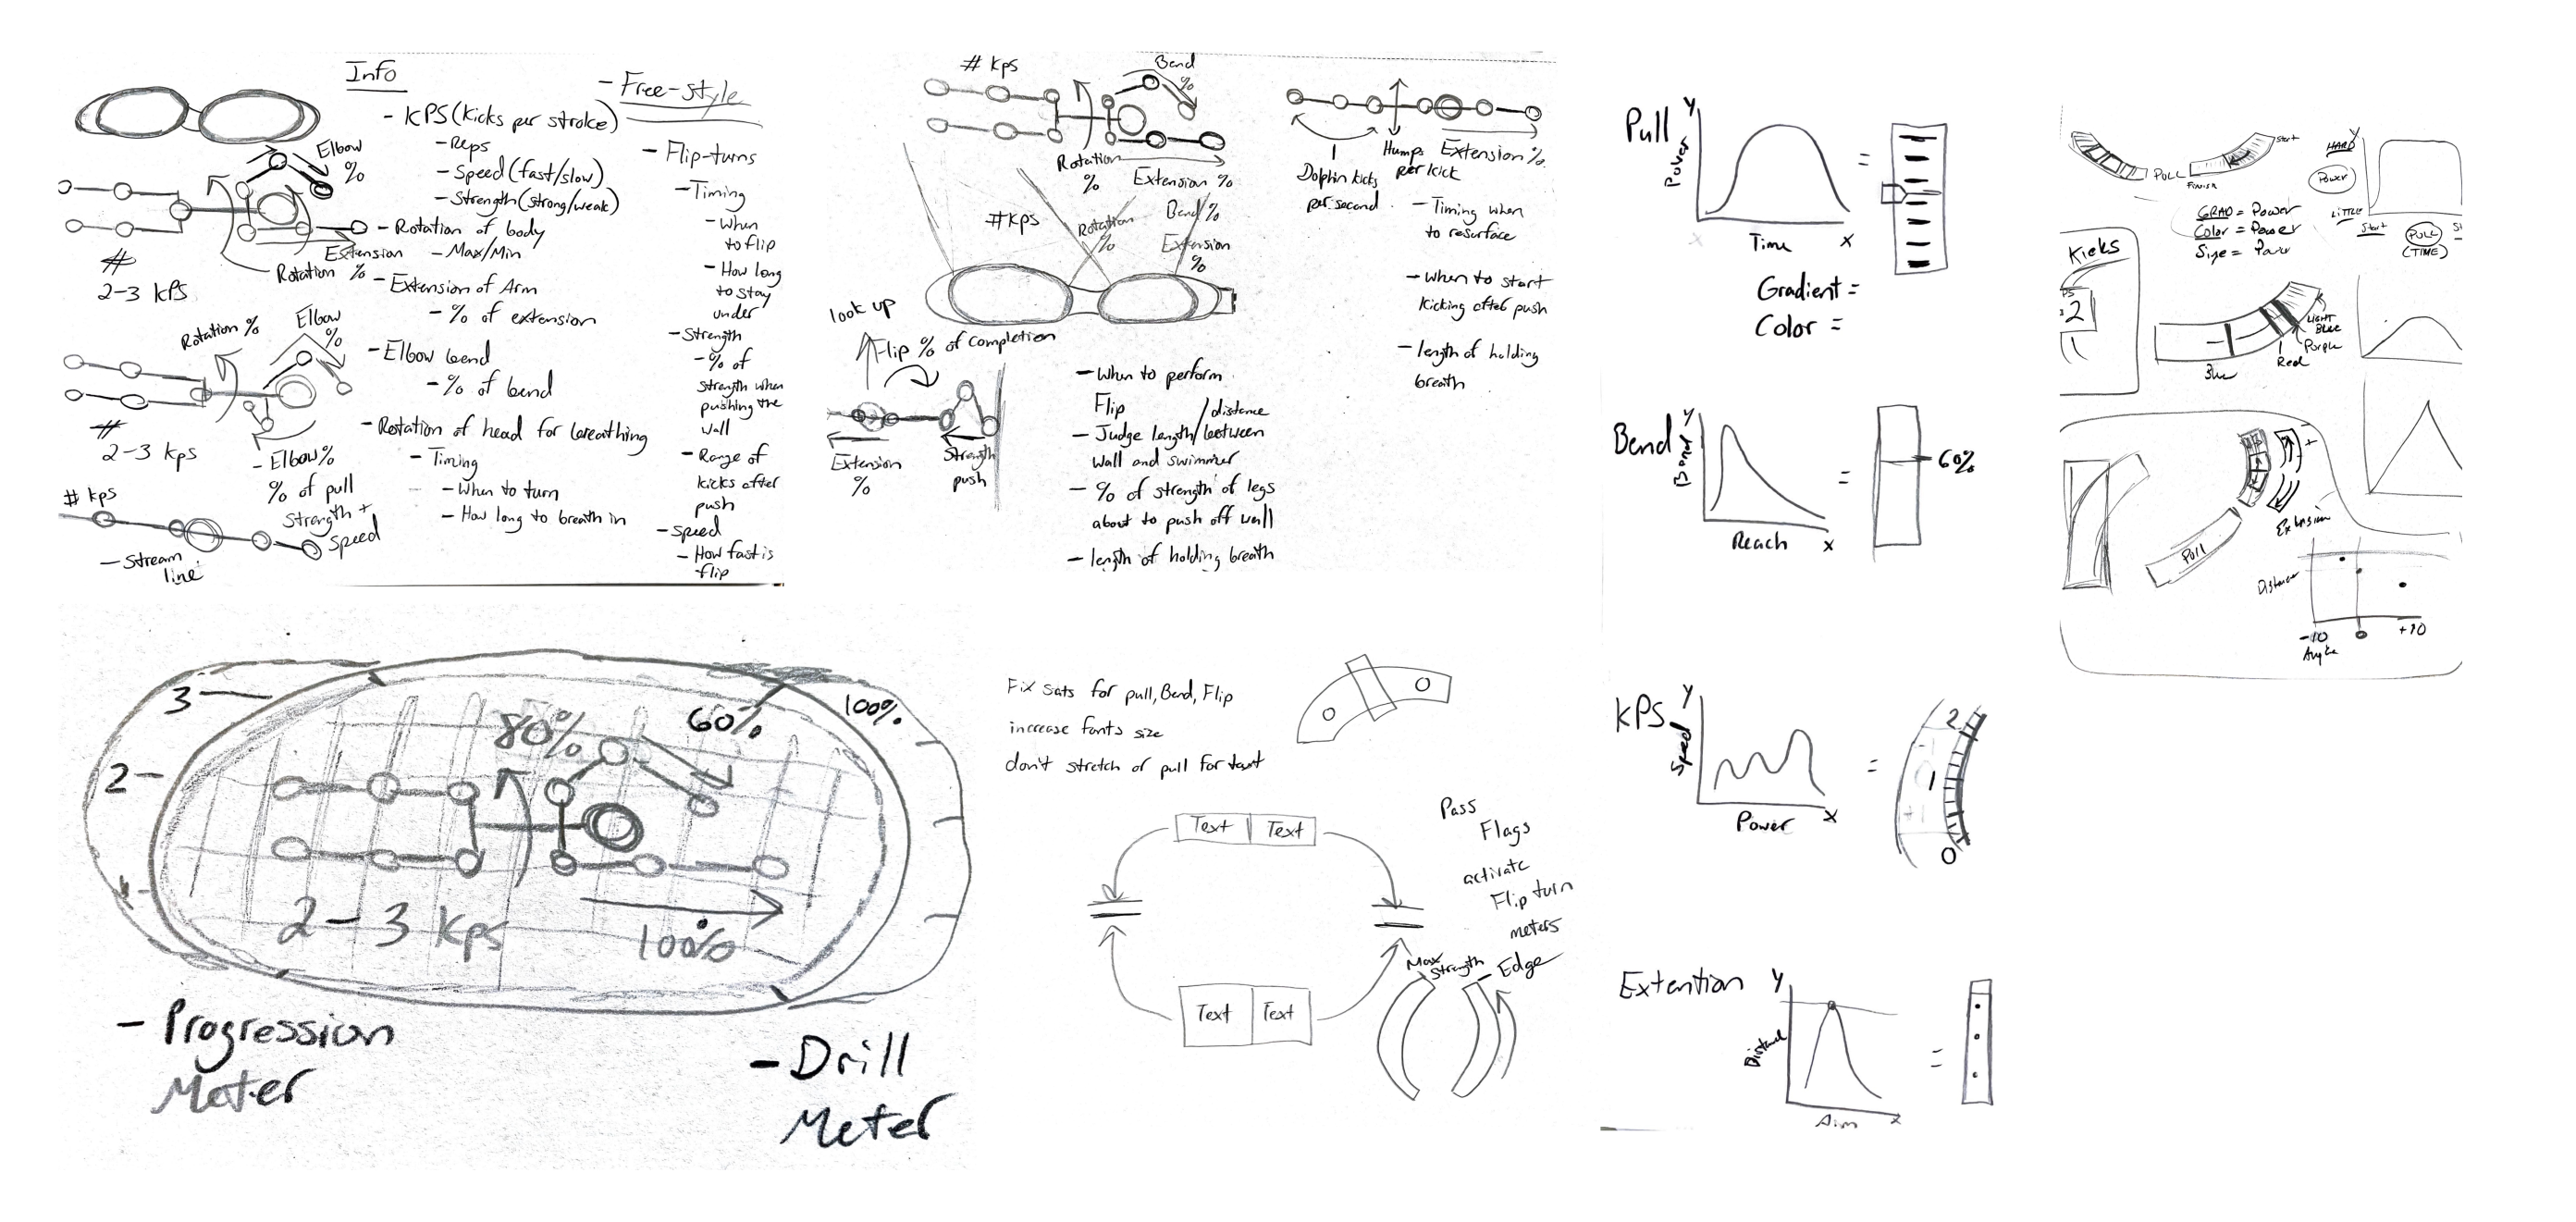 Info
- KPS (Kicks per stroke)
- Reps
- Speed (fast/slow)
- Strength (strong/weak)
- Rotation of body
- Max/Min
- Extension of Arm
- % of extension
- Elbow bend
- % of bend
- Rotation of head for breathing
- Timing
- When to turn
- How long to breath in
Elbow
%
Extension
Rotation %
#
2-3 KPS
Rotation %
Elbow
%
#
2-3 kps
- Elbow %
% of pull
Strength +
Speed
# kps
- Stream
line
- Free-style
- Flip-turns
- Timing
- When
to flip
- How long
to stay
under
- Strength
- % of
strength when
pushing the
wall
- Range of
kicks after
push
- Speed
- How fast is
flip
# Kps
Bend
%
Rotation
%
Extension %
#Kps
Rotation
%
Bend %
Extension
%
look up
Flip % of completion
Extension
%
Strength
push
- When to perform
Flip
- Judge length/distance
between
wall and swimmer
- % of strength of legs
about to push off wall
- length of holding breath
Dolphin kicks
per second
Humps
per kick
Extension %
- Timing when
to resurface
- When to start
kicking after push
- length of holding
breath
Pull
Y
Power
Time
X
=
Gradient =
Color =
Bend
Y
Bend
Reach
X
=
60%
KPS
Y
Speed
Power
X
=
2
1
0
Extention
Y
Distance
Aim
X
=
PULL
Start
Finish
GRAD = Power
Color = Power
Size =
HARD
Y
Power
LITTLE
Start
PULL
(TIME)
Kicks
2
1
Blue
Red
LIGHT
Blue
Purple
Pull
Extension
+
-
Distance
-10
0
+10
Angle
3
2
80%
60%
100%
2-3 Kps
100%
- Progression
Meter
- Drill
Meter
Fix sats for pull, Bend, Flip
increase fonts size
don't stretch or pull for text
Text
Text
Text
Text
Pass
Flags
activate
Flip turn
meters
Max
Strength
- Edge